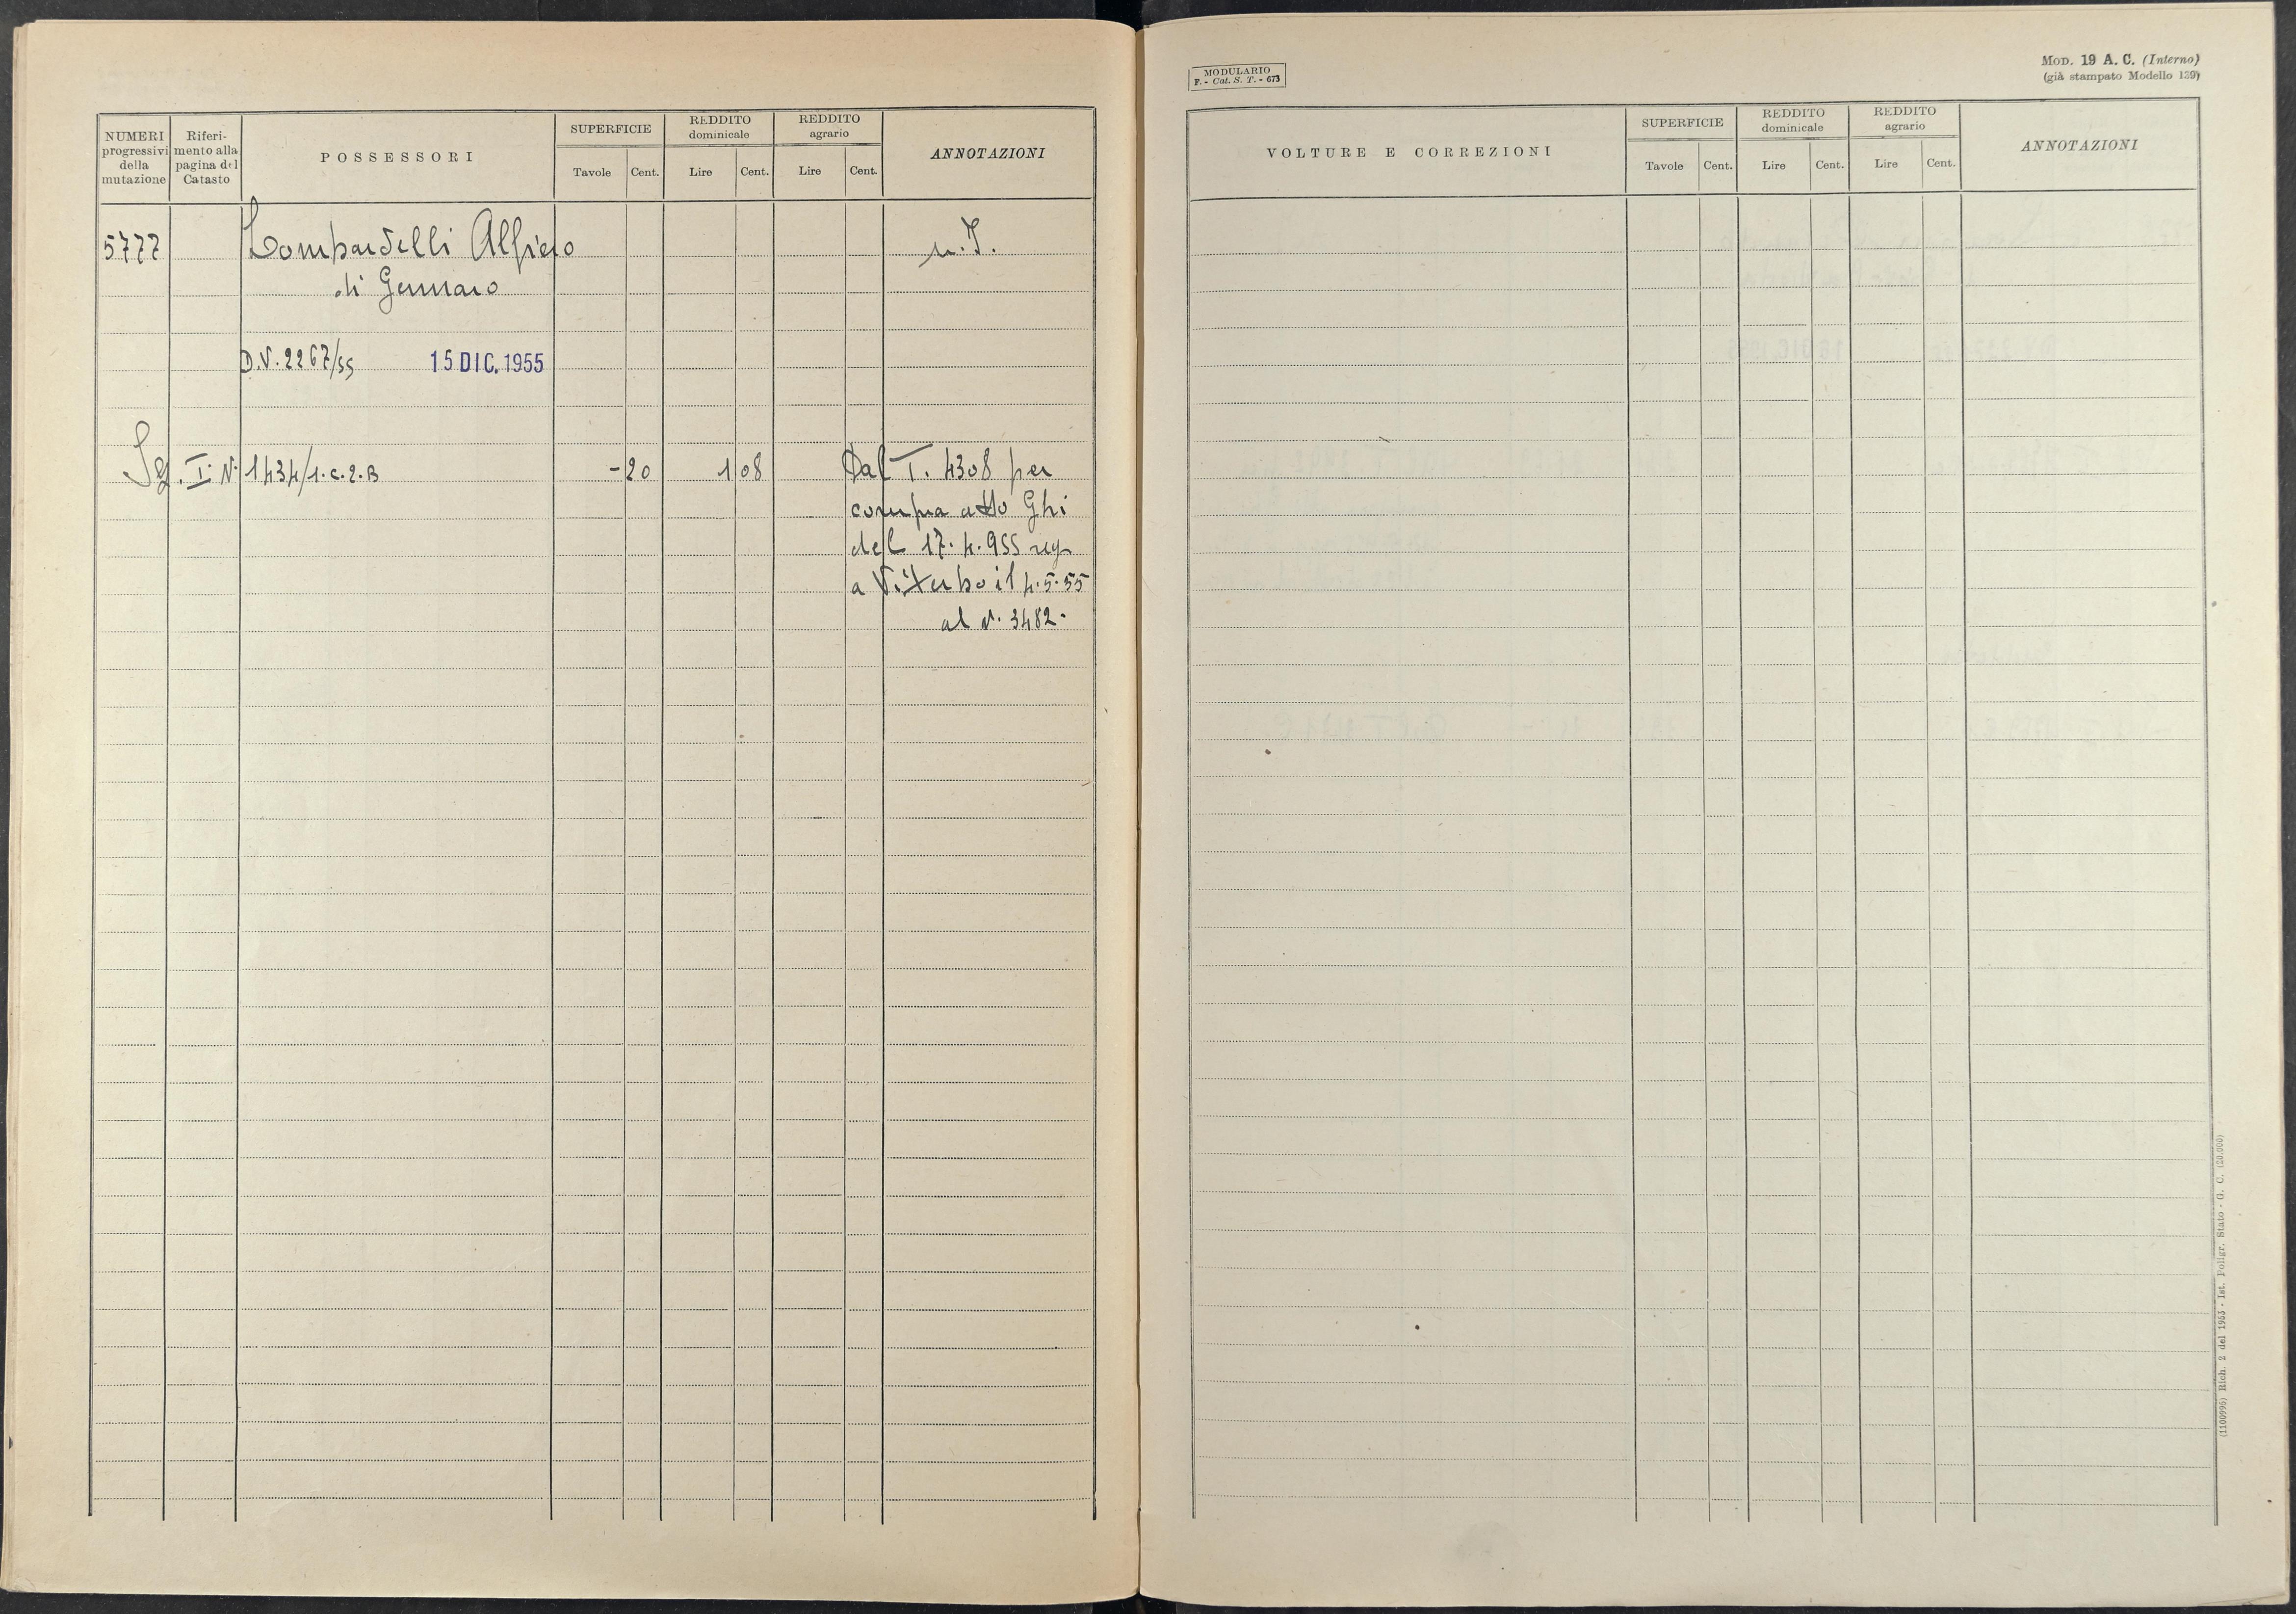 NUMERI progressivi della mutazione
Riferimento alla pagina del Catasto
POSSESSORI
SUPERFICIE
Tavole Cent.
REDDITO dominicale
Lire Cent.
REDDITO agrario
Lire Cent.
ANNOTAZIONI
5777 Lombardelli Alfiero n.I.
di Gennaro
D.V. 2267/55 15 DIC. 1955
I N. 1434/1.c.2.B -20 1 08 Dal T. 4308 per
compra atto Ghi
del 17.4.955 reg
a Viterbo il 4.5.55
al N. 3482-
MODULARIO
F. - Cat. S. T. - 673
MOD. 19 A. C. (Interno)
(già stampato Modello 139)
VOLTURE E CORREZIONI
SUPERFICIE
Tavole Cent.
REDDITO dominicale
Lire Cent.
REDDITO agrario
Lire Cent.
ANNOTAZIONI
Rich. 2 del 1953 - Ist. Poligr. Stato - G. C. (20.000)